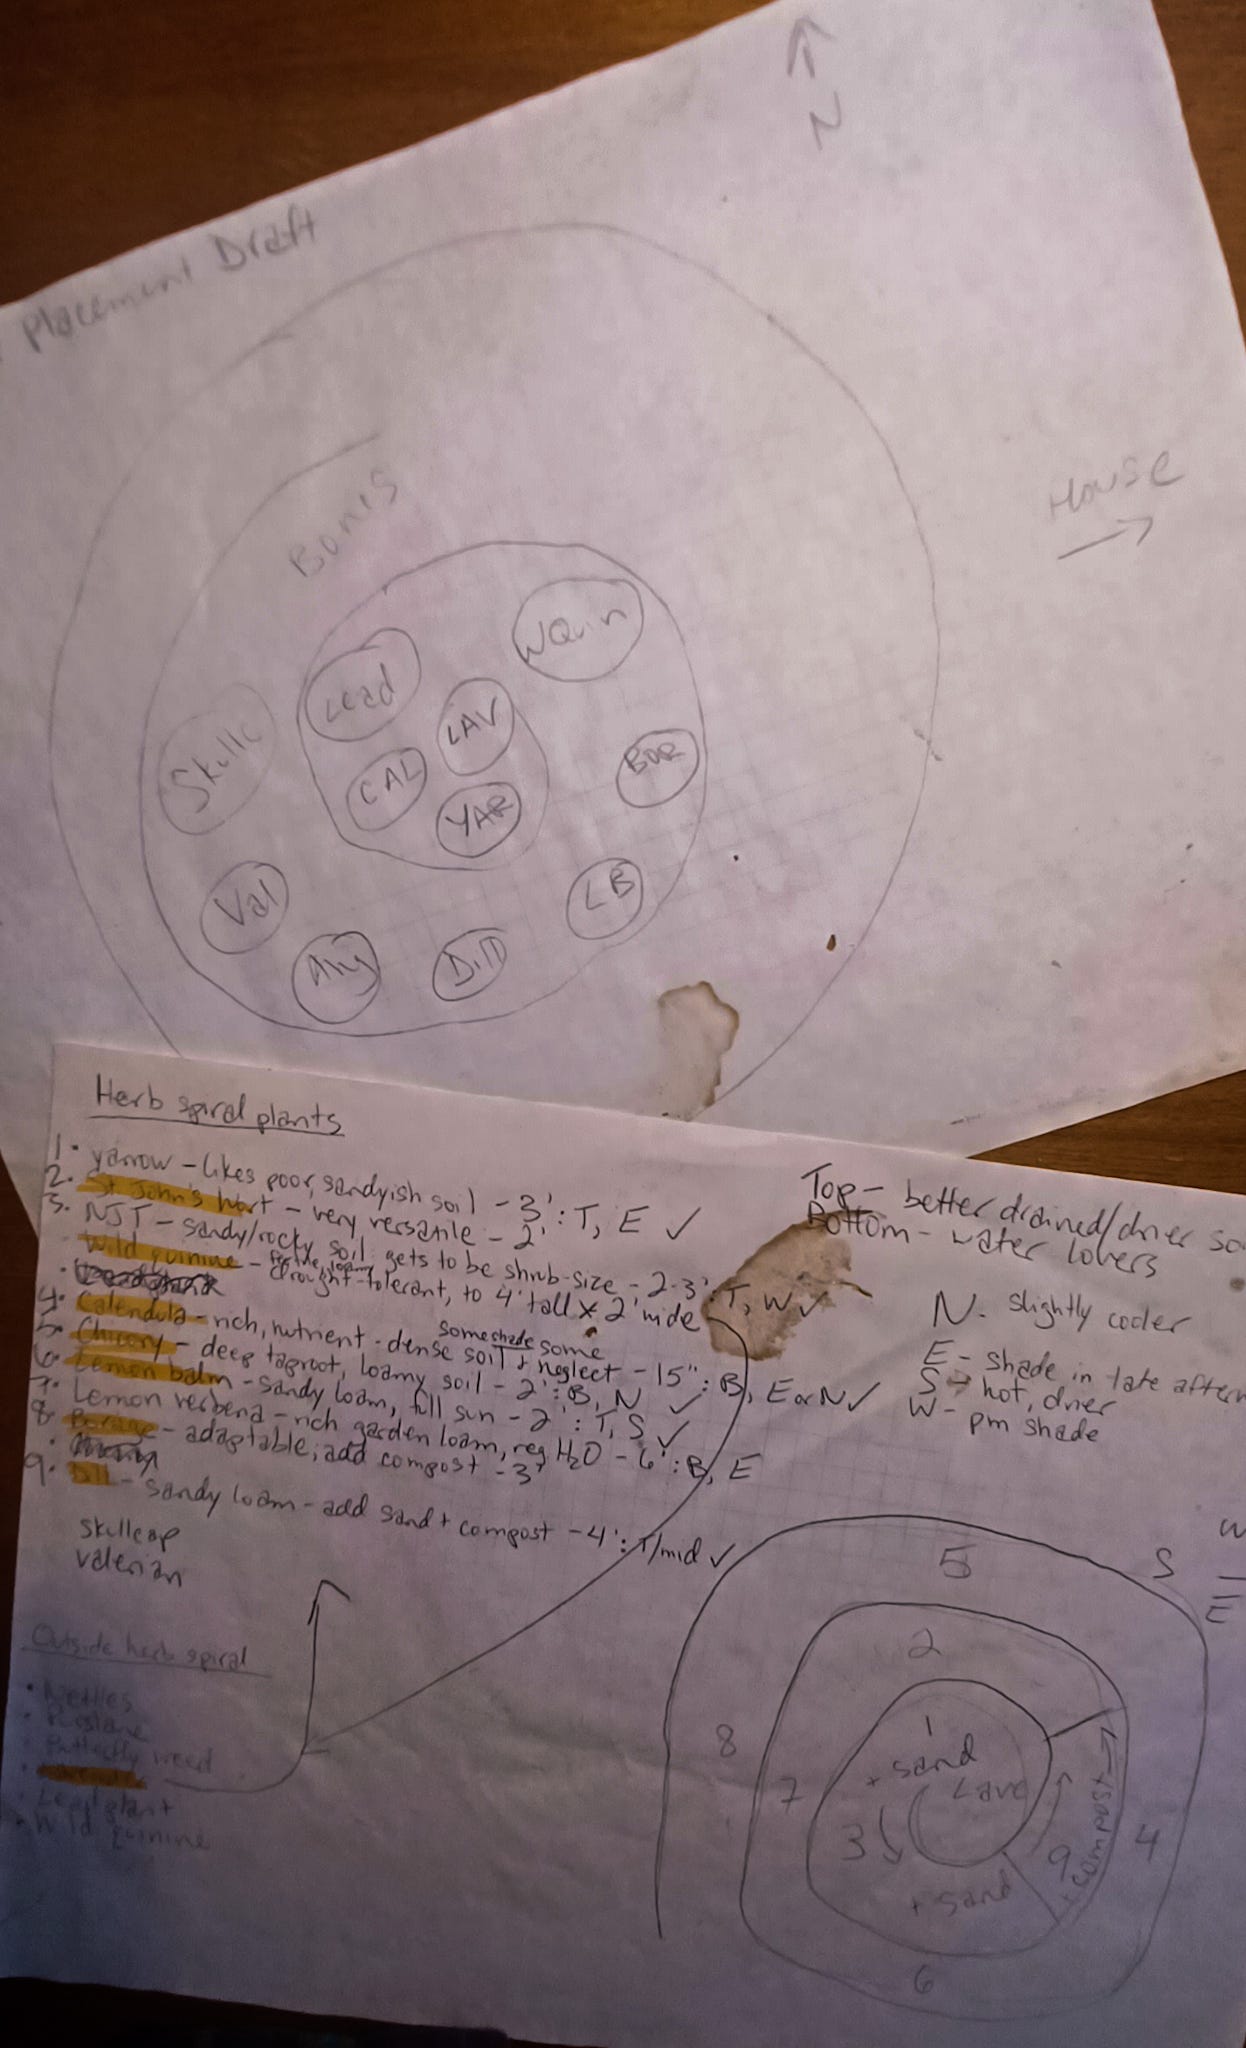 N
Placement Draft
House
Bones
Lead
WQuin
LAV
Skullc
CAL
BOR
YAR
Val
LB
Dill
Herb spiral plants
1. yarrow - likes poor, sandyish soil - 3': T, E ✓
2. St John's Wort - very versatile - 2'
3. NJT - sandy/rocky soil: gets to be shrub-size - 2-3': T, W ✓
Wild quinine - drought-tolerant, to 4' tall x 2' wide
4. Calendula - rich, nutrient-dense soil + some neglect - 15": B, E or N ✓
some shade
5. Chicory - deep taproot, loamy soil - 2': B, N ✓
6. Lemon balm - sandy loam, full sun - 2': T, S ✓
7. Lemon verbena - rich garden loam, reg H2O - 6': B, E
8. Borage - adaptable, add compost - 3'
9. Dill - sandy loam - add sand + compost - 4': T/mid ✓
skullcap
valerian
Top - better drained/drier so
Bottom - water lovers
N - slightly cooler
E - shade in late aftern
S - hot, drier
W - pm shade
Outside herb spiral
Nettles
Purslane
Butterfly weed
Leadplant
Wild quinine
W
S
E
5
2
1
+ sand
Lave
8
7
3
9
+ compost
4
+ sand
6